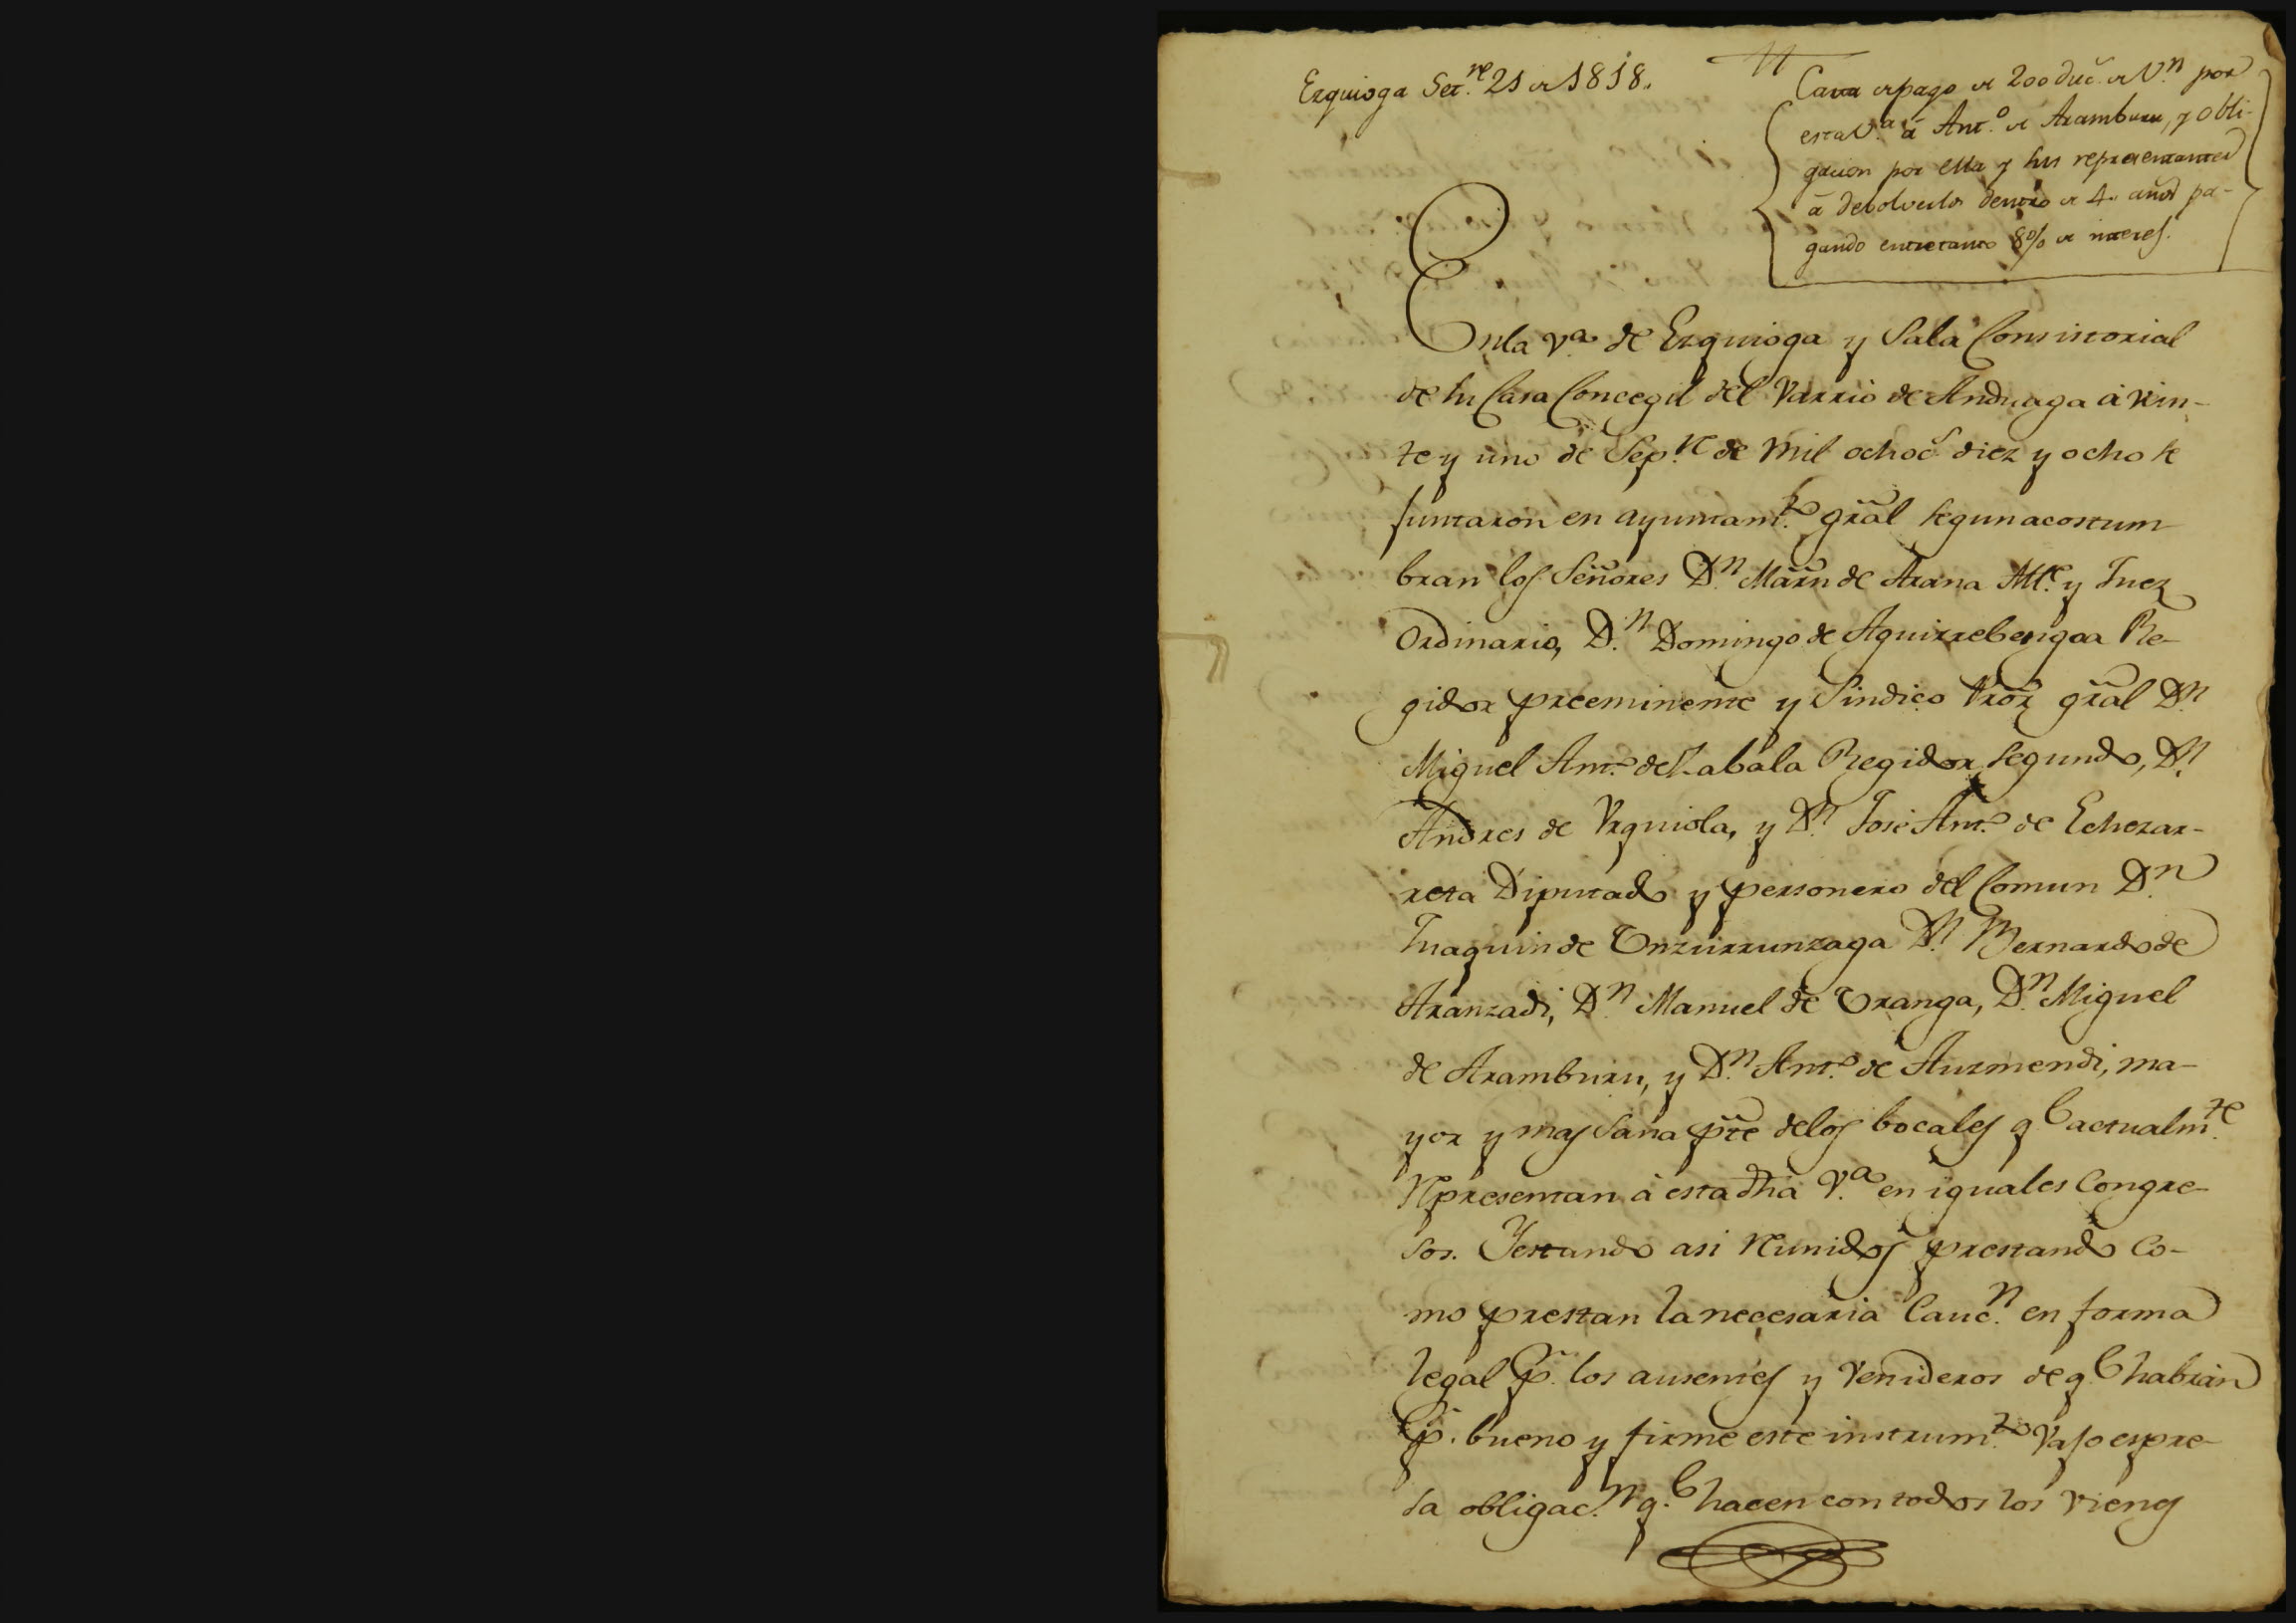 Ezquioga Set.re 21 de 1818.
Carta de pago de 200 duc.s de V.n por
esta V.a á Ant.o de Aramburu, y obli-
gacion por ella y sus representantes
á debolverlos dentro de 4. años pa-
gando entretanto 8% de interes.
En la v.a de Ezquioga y Sala Consistorial
de su Casa Concegil del Varrio de Anduaga á vein-
te y uno de Sep.re de mil ochoc.s diez y ocho se
juntaron en ayuntam.to gr̃al segun acostum-
bran los Señores D.n Mar̃n de Arana Alc.e y Juez
Ordinario, D.n Domingo de Aguirrebengoa Re-
gidor preeminente y Sindico Pror̃ gr̃al D.n
Miguel Ant.o de Zabala Regidor segundo, D.n
Andres de Vrquiola, y D.n José Ant.o de Echezar-
reta Diputado y personero del Comun D.n
Juaquin de Vnzurrunzaga D.n Bernardo de
Aranzadi, D.n Manuel de Vranga, D.n Miguel
de Aramburu, y D.n Ant.o de Auzmendi, ma-
yor y mas sana pt̃e de los bocales q.e actualm.te
Representan á esta dh̃a V.a en iguales Congre-
sos. Y estando asi Reunidos prestando co-
mo prestan la necesaria Cauc.n en forma
legal p.r los ausentes y venideros de q.e habrán
p.r bueno y firme este instrum.to vajo espre-
sa obligac.n q.e hacen con todos los vienes